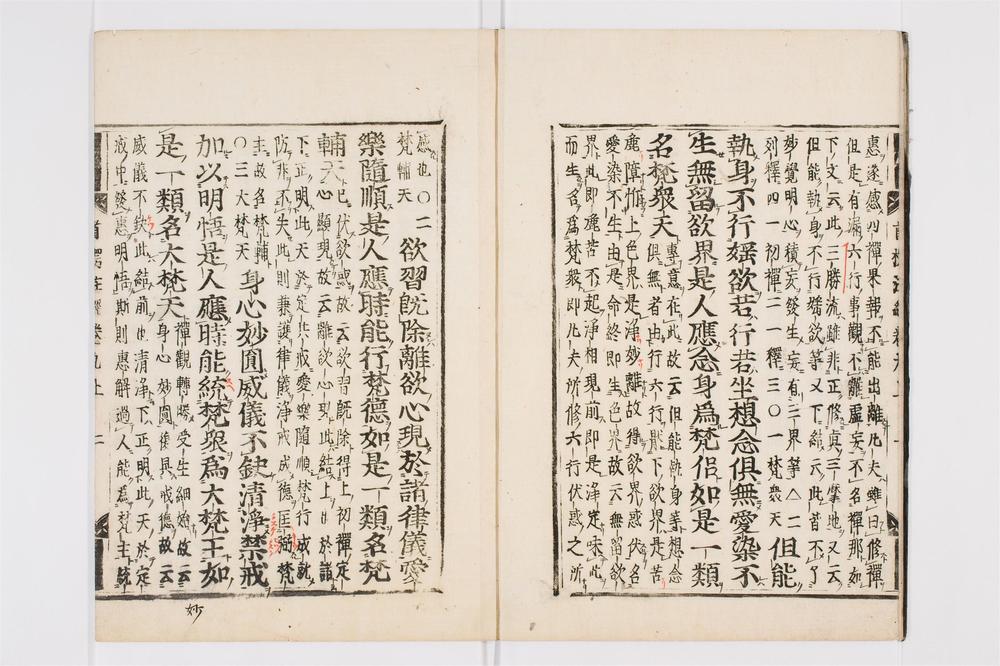 惠遂感四禪果報不能出離凡夫雖曰修禪
但是有漏六行事觀不離虛妄不名禪那如
下文云此三勝流雖非正修真三摩地又云
但能執身不行婬欲等又下結云此皆不了
妙覺明心積妄發生妄有三界等△二
列釋四一初禪二一釋三〇一梵衆天但能
執身不行婬欲若行若坐想念俱無愛染不
生無留欲界是人應念身爲梵侶如是一類
名梵衆天專意在此故云但能執身等想念
俱無者由行六行厭下欲界是苦
麁障忻上色界是淨妙離故得欲界惑伏
愛染不生由是命終即生色界故云無留欲
界此即麁苦不起淨相現前即是淨定乘此
而生名爲梵衆即凡夫所修六行伏惑之所
感也〇二
梵輔天
欲習旣除離欲心現於諸律儀愛
樂隨順是人應時能行梵德如是一類名梵
輔天已伏欲惑故云欲習旣除得上初禪定
心顯現故云離欲心現此結上也於諸
下正明此天於定共戒愛樂隨順梵行成就
防非不失此則兼護律儀淨戒成德匡弼梵
主故名梵輔
〇三大梵天
身心妙圓威儀不缺清淨禁戒
加以明悟是人應時能統梵衆爲大梵王如
是一類名大梵天禪觀轉勝受生細妙故云
身心妙圓復具戒德故云
威儀不缺此結前也清淨下正明此天於定
戒中發惠明悟斯則惠解過人能爲梵主統
首楞
二
妙